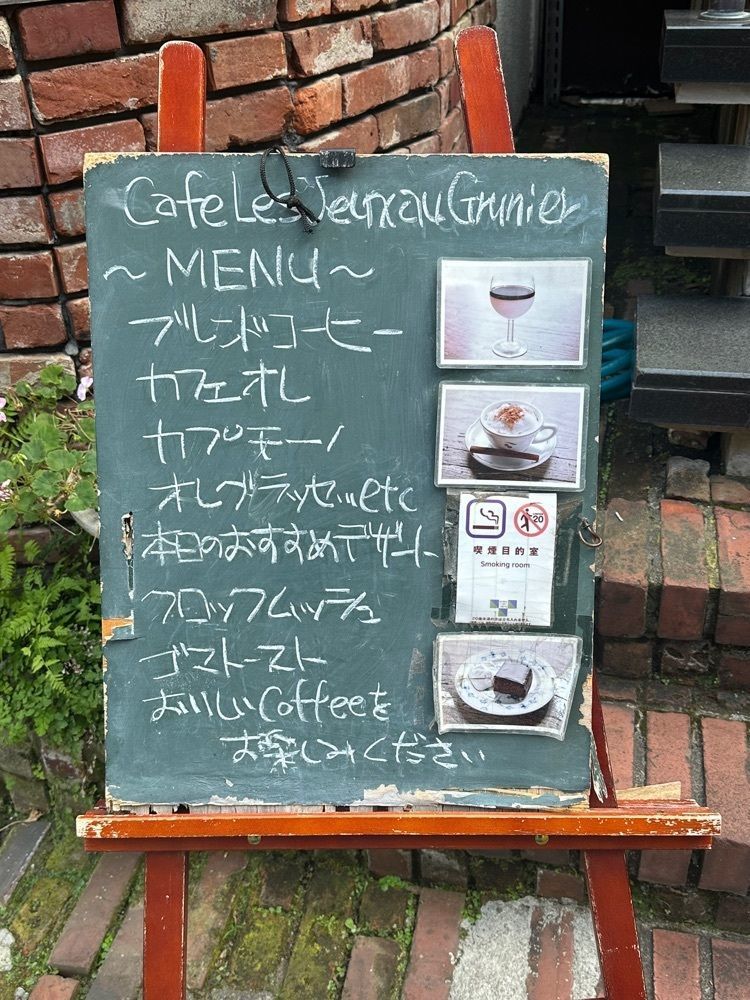 Cafe Les Jeux au Grenier
~ MENU ~
ブレンドコーヒー
カフェオレ
カプチーノ
オレグラッセ...etc
本日のおすすめデザート
クロックムッシュ
ゴマトースト
おいしいCoffeeを
お楽しみください
20
喫煙目的室
Smoking room